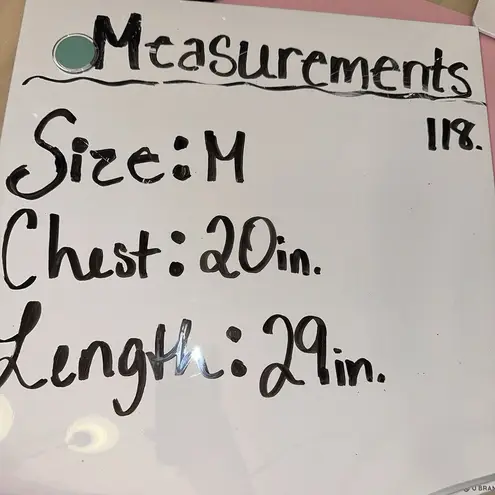 Measurements
118.
Size: M
Chest: 20in.
Length: 29in.